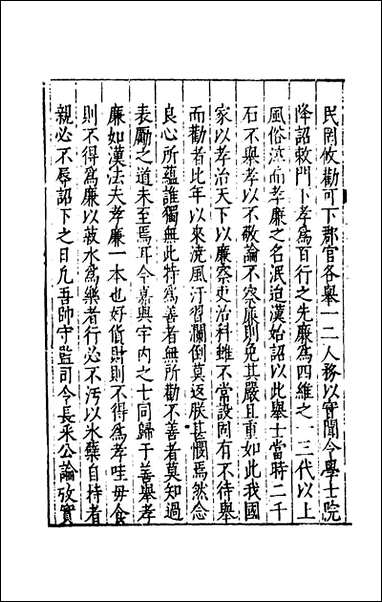 民罔攸勸可下郡官各舉一二人務以實聞令學士院
降詔敕門卜孝爲百行之先廉爲四維之一三代以上
風俗淳而孝廉之名泯迨漢始詔以此舉士當時二千
石不舉孝以不敬論不察廉則免其嚴且重如此我國
家以孝治天下以廉察吏治科雖不常設固有不待舉
而勸者比年以來澆風汙習瀾倒莫返朕甚憫焉然念
良心所蘊誰獨無此特爲善者無所勸不善者莫知過
表勵之道未至焉耳今嘉與宇內之士同歸于善舉孝
廉如漢法夫孝廉一本也好貨財則不得爲孝哇毋食
則不得爲廉以菽水爲樂者行必不汚以氷蘗自持者
親必不辱詔下之日凡吾帥守監司令長釆公論攷實